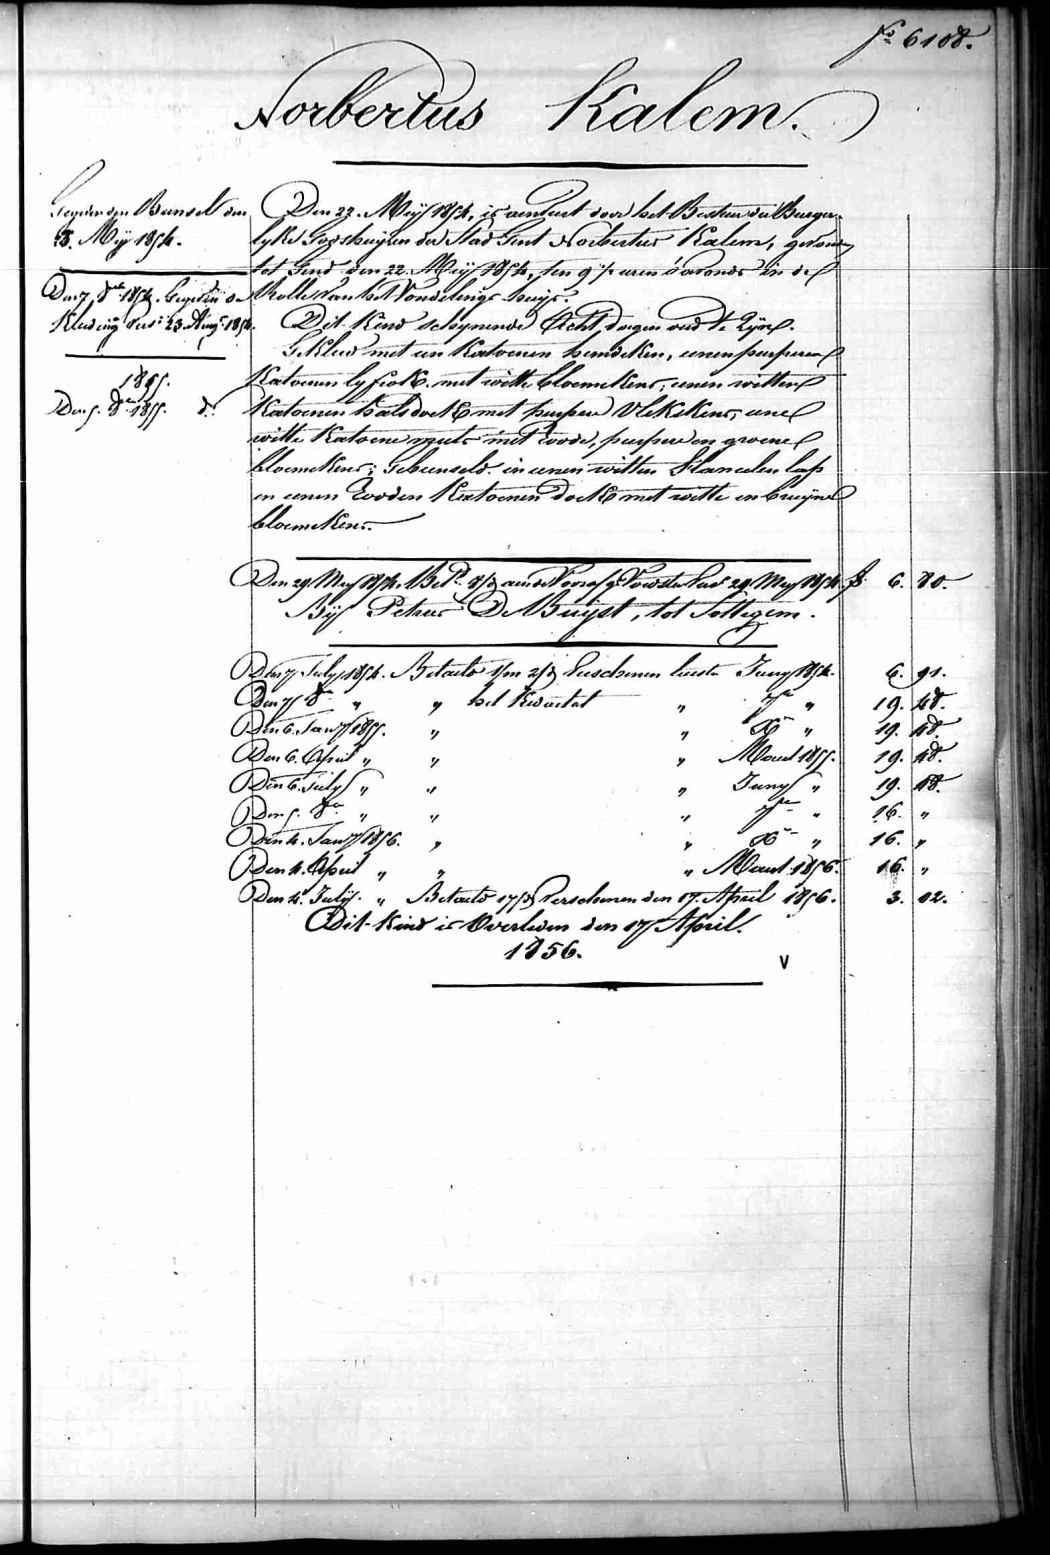 fo 6108.
Norbertus Kalem.
Gegeven een Bunsel den
23. Meij 1854.
Den 7 8bre 1854. Gegeven de
Kleding sedert 23 Augt 1854.
1855.
Den 5. 8bre 1855. do
Den 22. Meij 1854, is aenveert door het Bestuer der Burger-
lyke Godshuyzen der Stad Gent Norbertus Kalem, gevonden
tot Gend den 22. Meij 1854, ten 9 1/2 uren s'avonds in de
Rolle van het Vondelings huys.
Dit Kind schynende Acht dagen oud te Zijn.
Gekleed met een Katoenen hemdeken, eenen purperen
Katoenen lyfrok met witte bloemekens, eenen witten
Katoenen halsdoek met purpere Vlekskens, eene
witte Katoene muts met roode, purpere en groene
bloemekens; Gebunseld in eenen witten Flanelen lap
en eenen rooden Katoenen doek met witte en bruyne
bloemekens.
Den 29 Mey 1854. Betd 1/3 aen de Voorsg. Voedster sedert 29 Mey 1854 fs 6. 80.
Bij Petrus De Buijst, tot Sottegem.
Den 7 July 1854. Betaeld 1/m 2/d Verschenen lesten Juny 1854. 6. 91.
Den 7 8bre „ „ het Kwartaal „ 7bre „ 19. 48.
Den 6. Jany 1855. „ „ Xbre „ 19. 48.
Den 6. April „ „ „ Maert 1855. 19. 48.
Den 6. July „ „ „ Juny „ 19. 48.
Den 5. 8bre „ „ „ 7bre „ 16. „
Den 4. Jany 1856. „ „ Xbre „ 16. „
Den 4. April „ „ „ Maert 1856. 16. „
Den 4. Julij. „ Betaeld 17/d Verschenen den 17. April 1856. 3. 02.
Dit Kind is Overleden den 17 April.
1856.
V